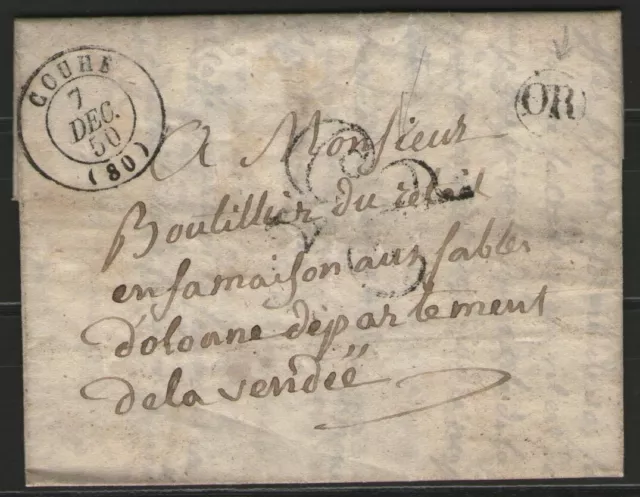 COUHE
7
DEC.
50
(80)
OR
A Monsieur
Boutillier du retail
en sa maison aux sables
d'olonne département
de la vendéë